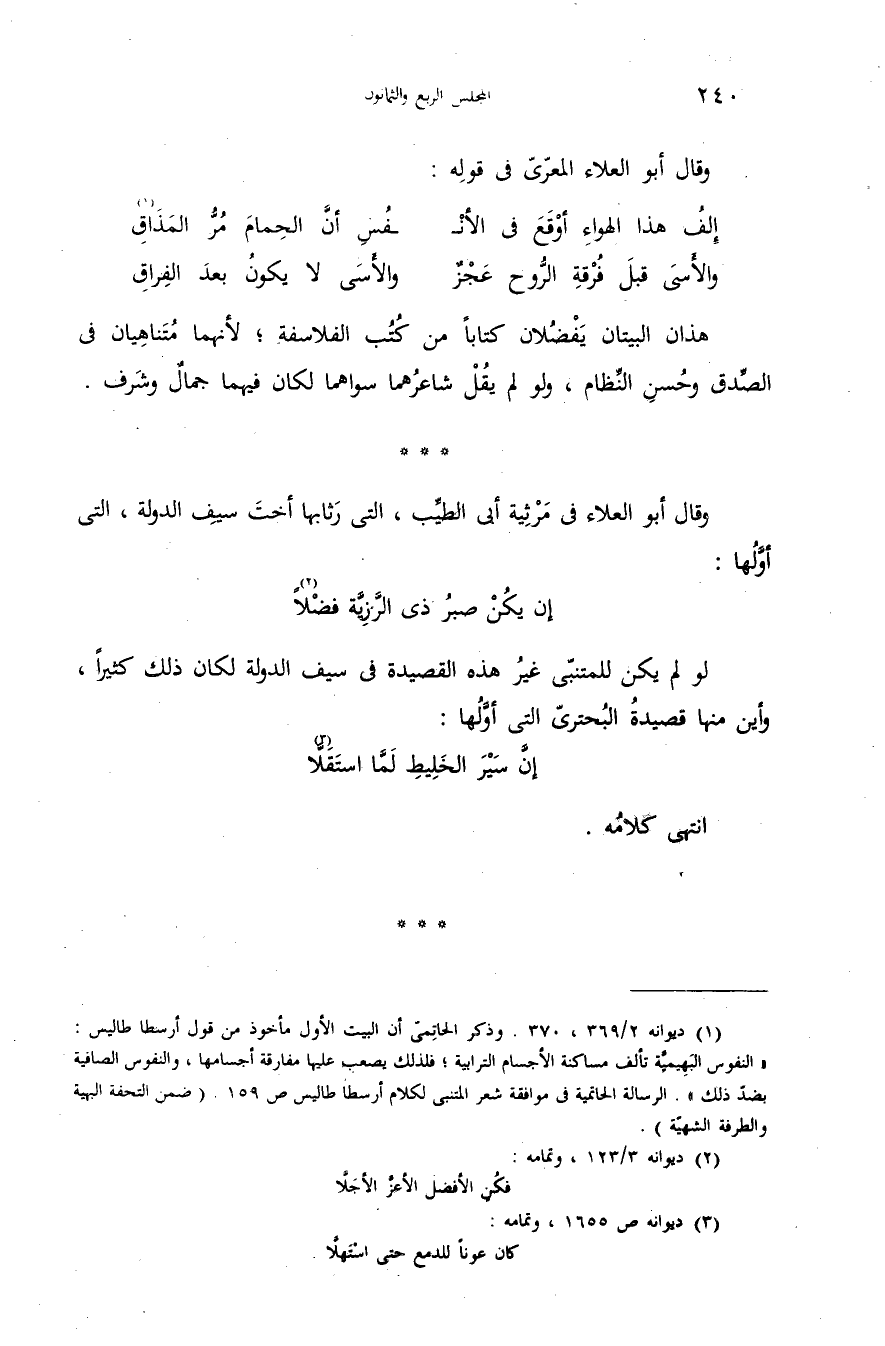 ٢٤٠ المجلس الربع والثمانون
وقال أبو العلاء المعرّىّ فى قولِه :
إلفُ هذا الهواءِ أوْقَعَ فى الأنْـ ـفُسِ أنَّ الحِمامَ مُرُّ المَذَاقِ (١)
والأَسَى قبلَ فُرْقةِ الرُّوح عَجْزٌ والأَسَى لا يكونُ بعدَ الفِراقِ
هذان البيتان يَفْضُلان كتاباً من كُتُب الفلاسفة ؛ لأنهما مُتَناهِيان فى
الصِّدق وحُسنِ النِّظام ، ولو لم يقُلْ شاعرُهما سواهما لكان فيهما جمالٌ وشَرف .
* * *
وقال أبو العلاء فى مَرْثِية أبى الطيِّب ، التى رَثابها أختَ سيفِ الدولة ، التى
أوَّلُها :
إن يكُنْ صبرُ ذى الرَّزِيَّة فضْلاً (٢)
لو لم يكن للمتنبّى غيرُ هذه القصيدة فى سيف الدولة لكان ذلك كثيراً ،
وأين منها قصيدةُ البُحترىّ التى أوَّلُها :
إنَّ سَيْرَ الخَلِيطِ لَمَّا استَقَلَّا (٣)
انتهى كلامُه .
* * *
(١) ديوانه ٣٦٩/٢ ، ٣٧٠ . وذكر الحاتِمىّ أن البيت الأول مأخوذ من قول أرسطا طاليس :
« النفوس البَهِيميَّة تألف مساكنة الأجسام الترابية ؛ فلذلك يصعب عليها مفارقة أجسامها ، والنفوس الصافية
بضدّ ذلك » . الرسالة الحاتمية فى موافقة شعر المتنبى لكلام أرسطا طاليس ص ١٥٩ . ( ضمن التحفة البهية
والطرفة الشهيّة ) .
(٢) ديوانه ١٢٣/٣ ، وتمامه :
فكُنِ الأفضل الأعزَّ الأجَلَّا
(٣) ديوانه ص ١٦٥٥ ، وتمامه :
كان عوناً للدمع حتى اسْتَهلَّا .